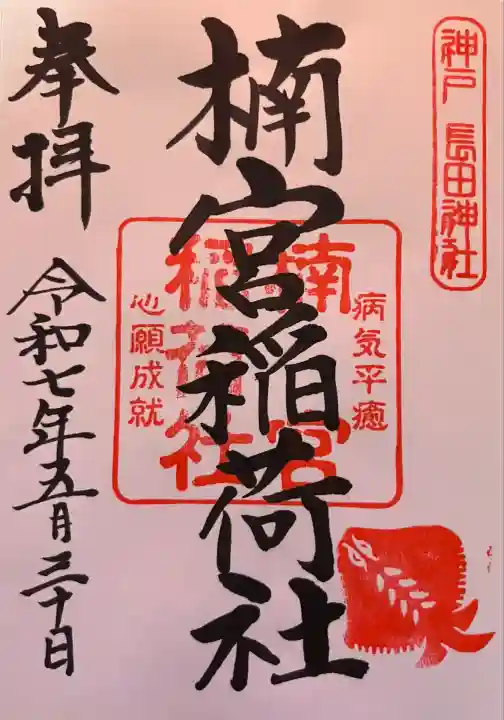 神戸 長田神社
楠宮稲荷社
病気平癒
楠宮
稲荷社
心願成就
奉拝
令和七年五月三十日